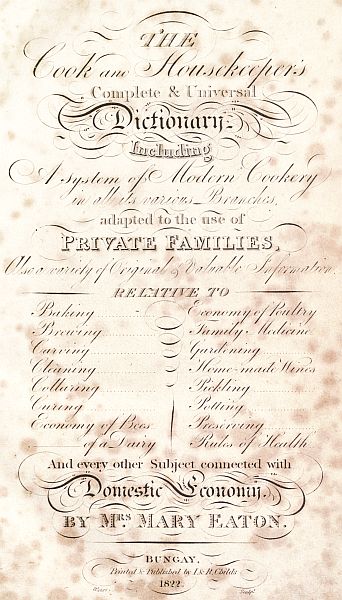 THE
Cook and Housekeeper's
Complete & Universal
Dictionary
Including
A system of Modern Cookery
in all its various Branches,
adapted to the use of
PRIVATE FAMILIES,
Also a variety of Original & Valuable Information,
RELATIVE TO
Baking
Brewing
Carving
Cleaning
Collaring
Curing
Economy of Bees
of a Dairy
Economy of Poultry
Family Medicine
Gardening
Home-made Wines
Pickling
Potting
Preserving
Rules of Health
And every other Subject connected with
Domestic Economy.
BY MRS MARY EATON.
BUNGAY,
Printed & Published by I. & R. Childs
1822.
Sculpt.